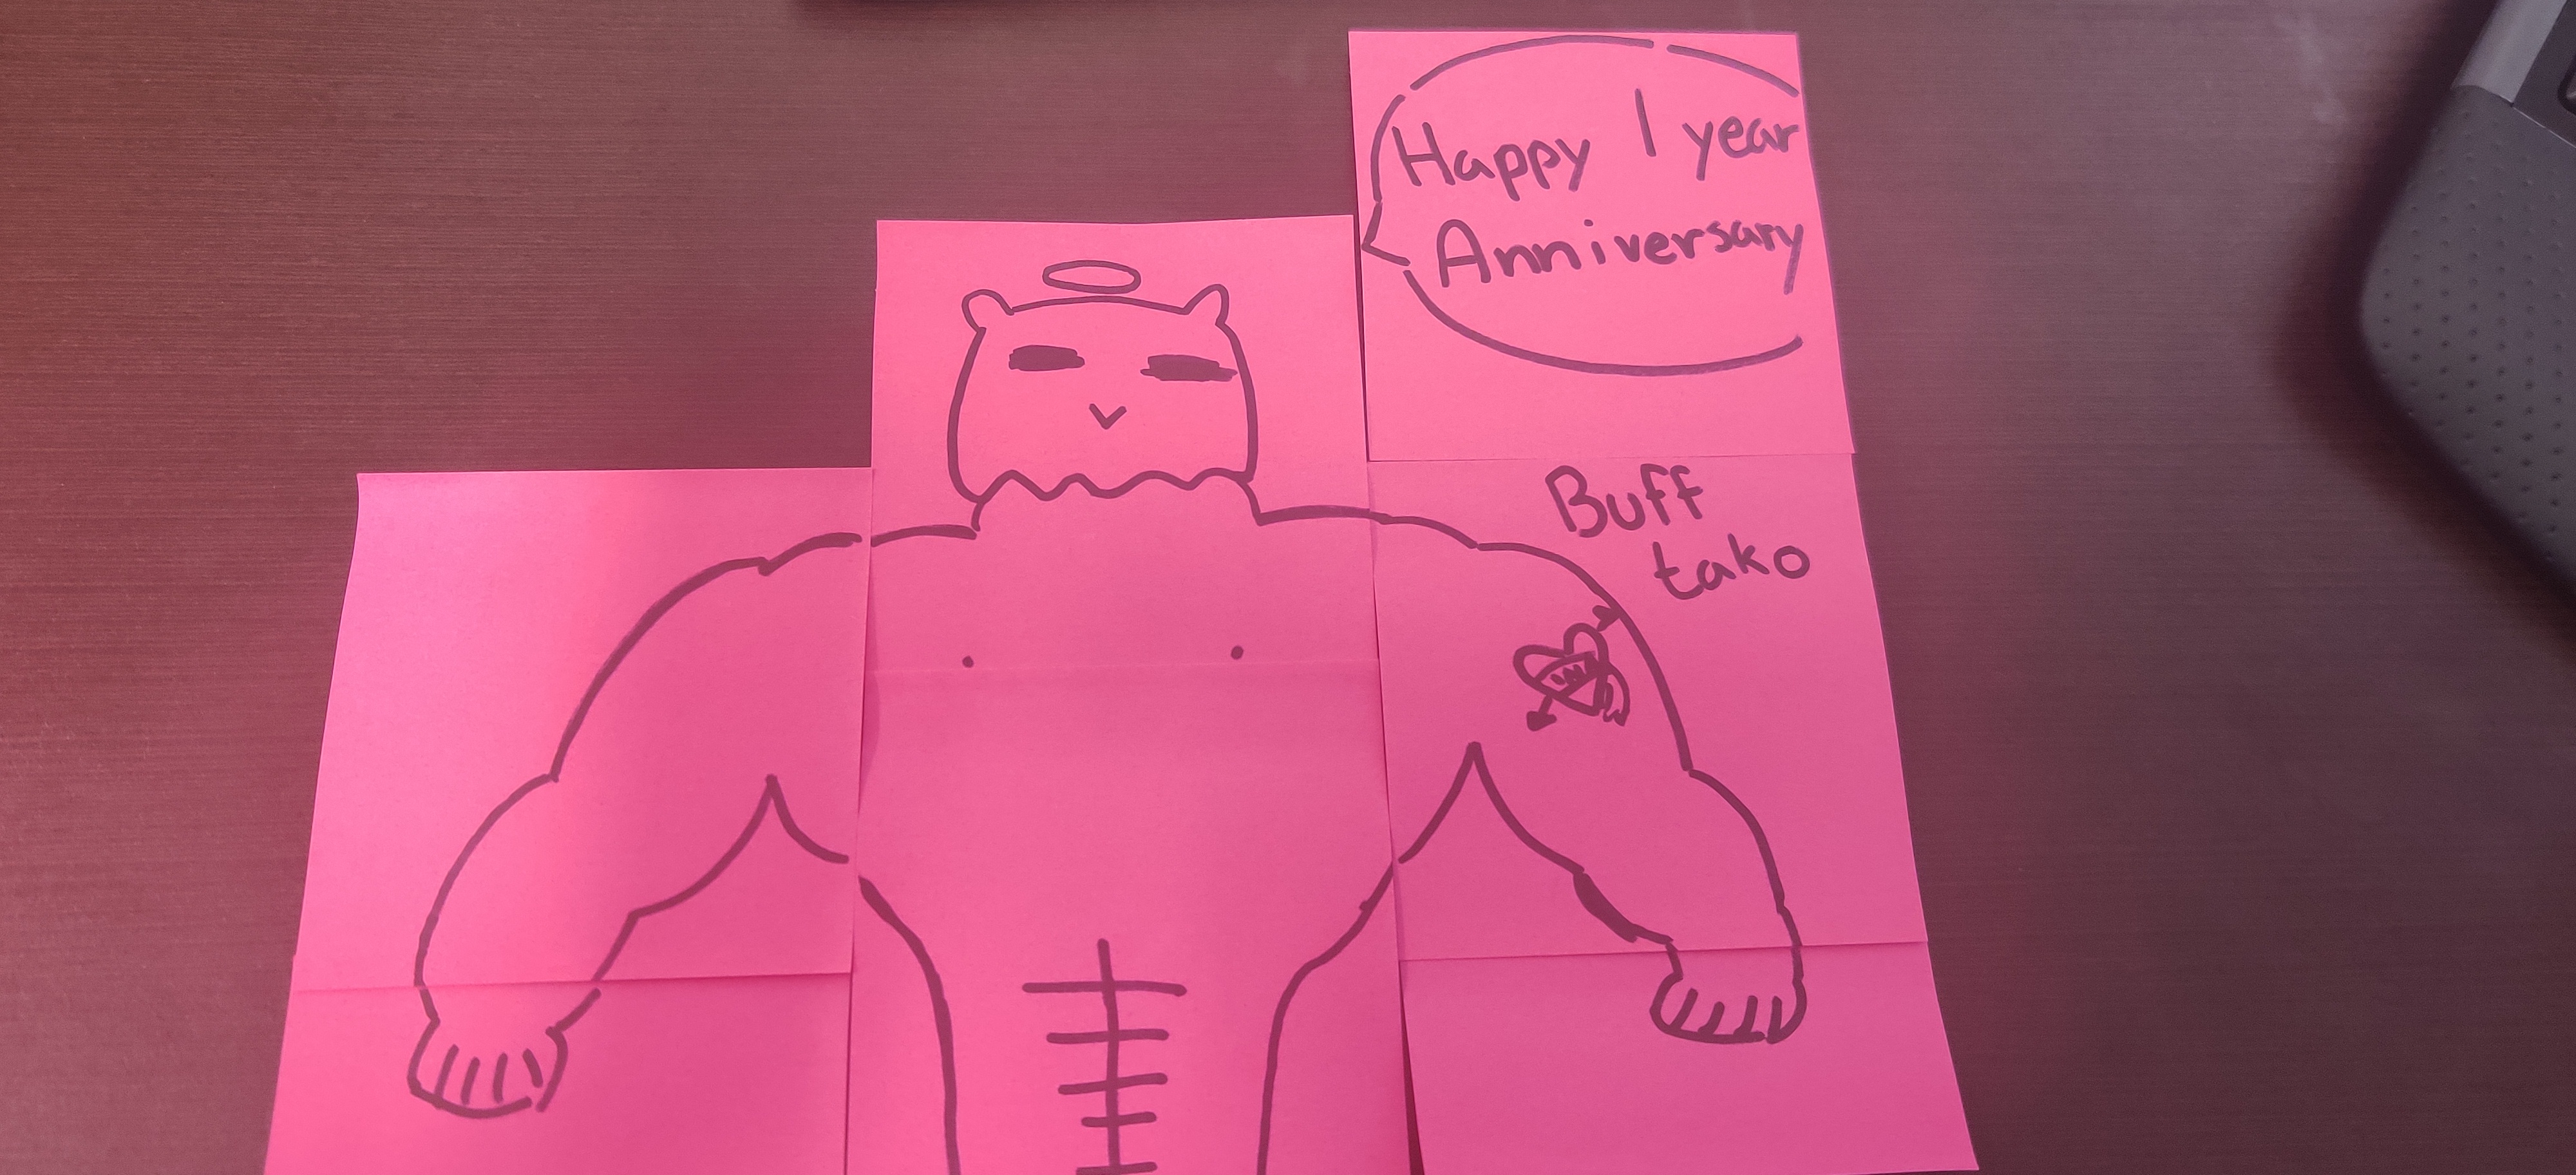 Happy 1 year
Anniversary
Buff
tako
INA